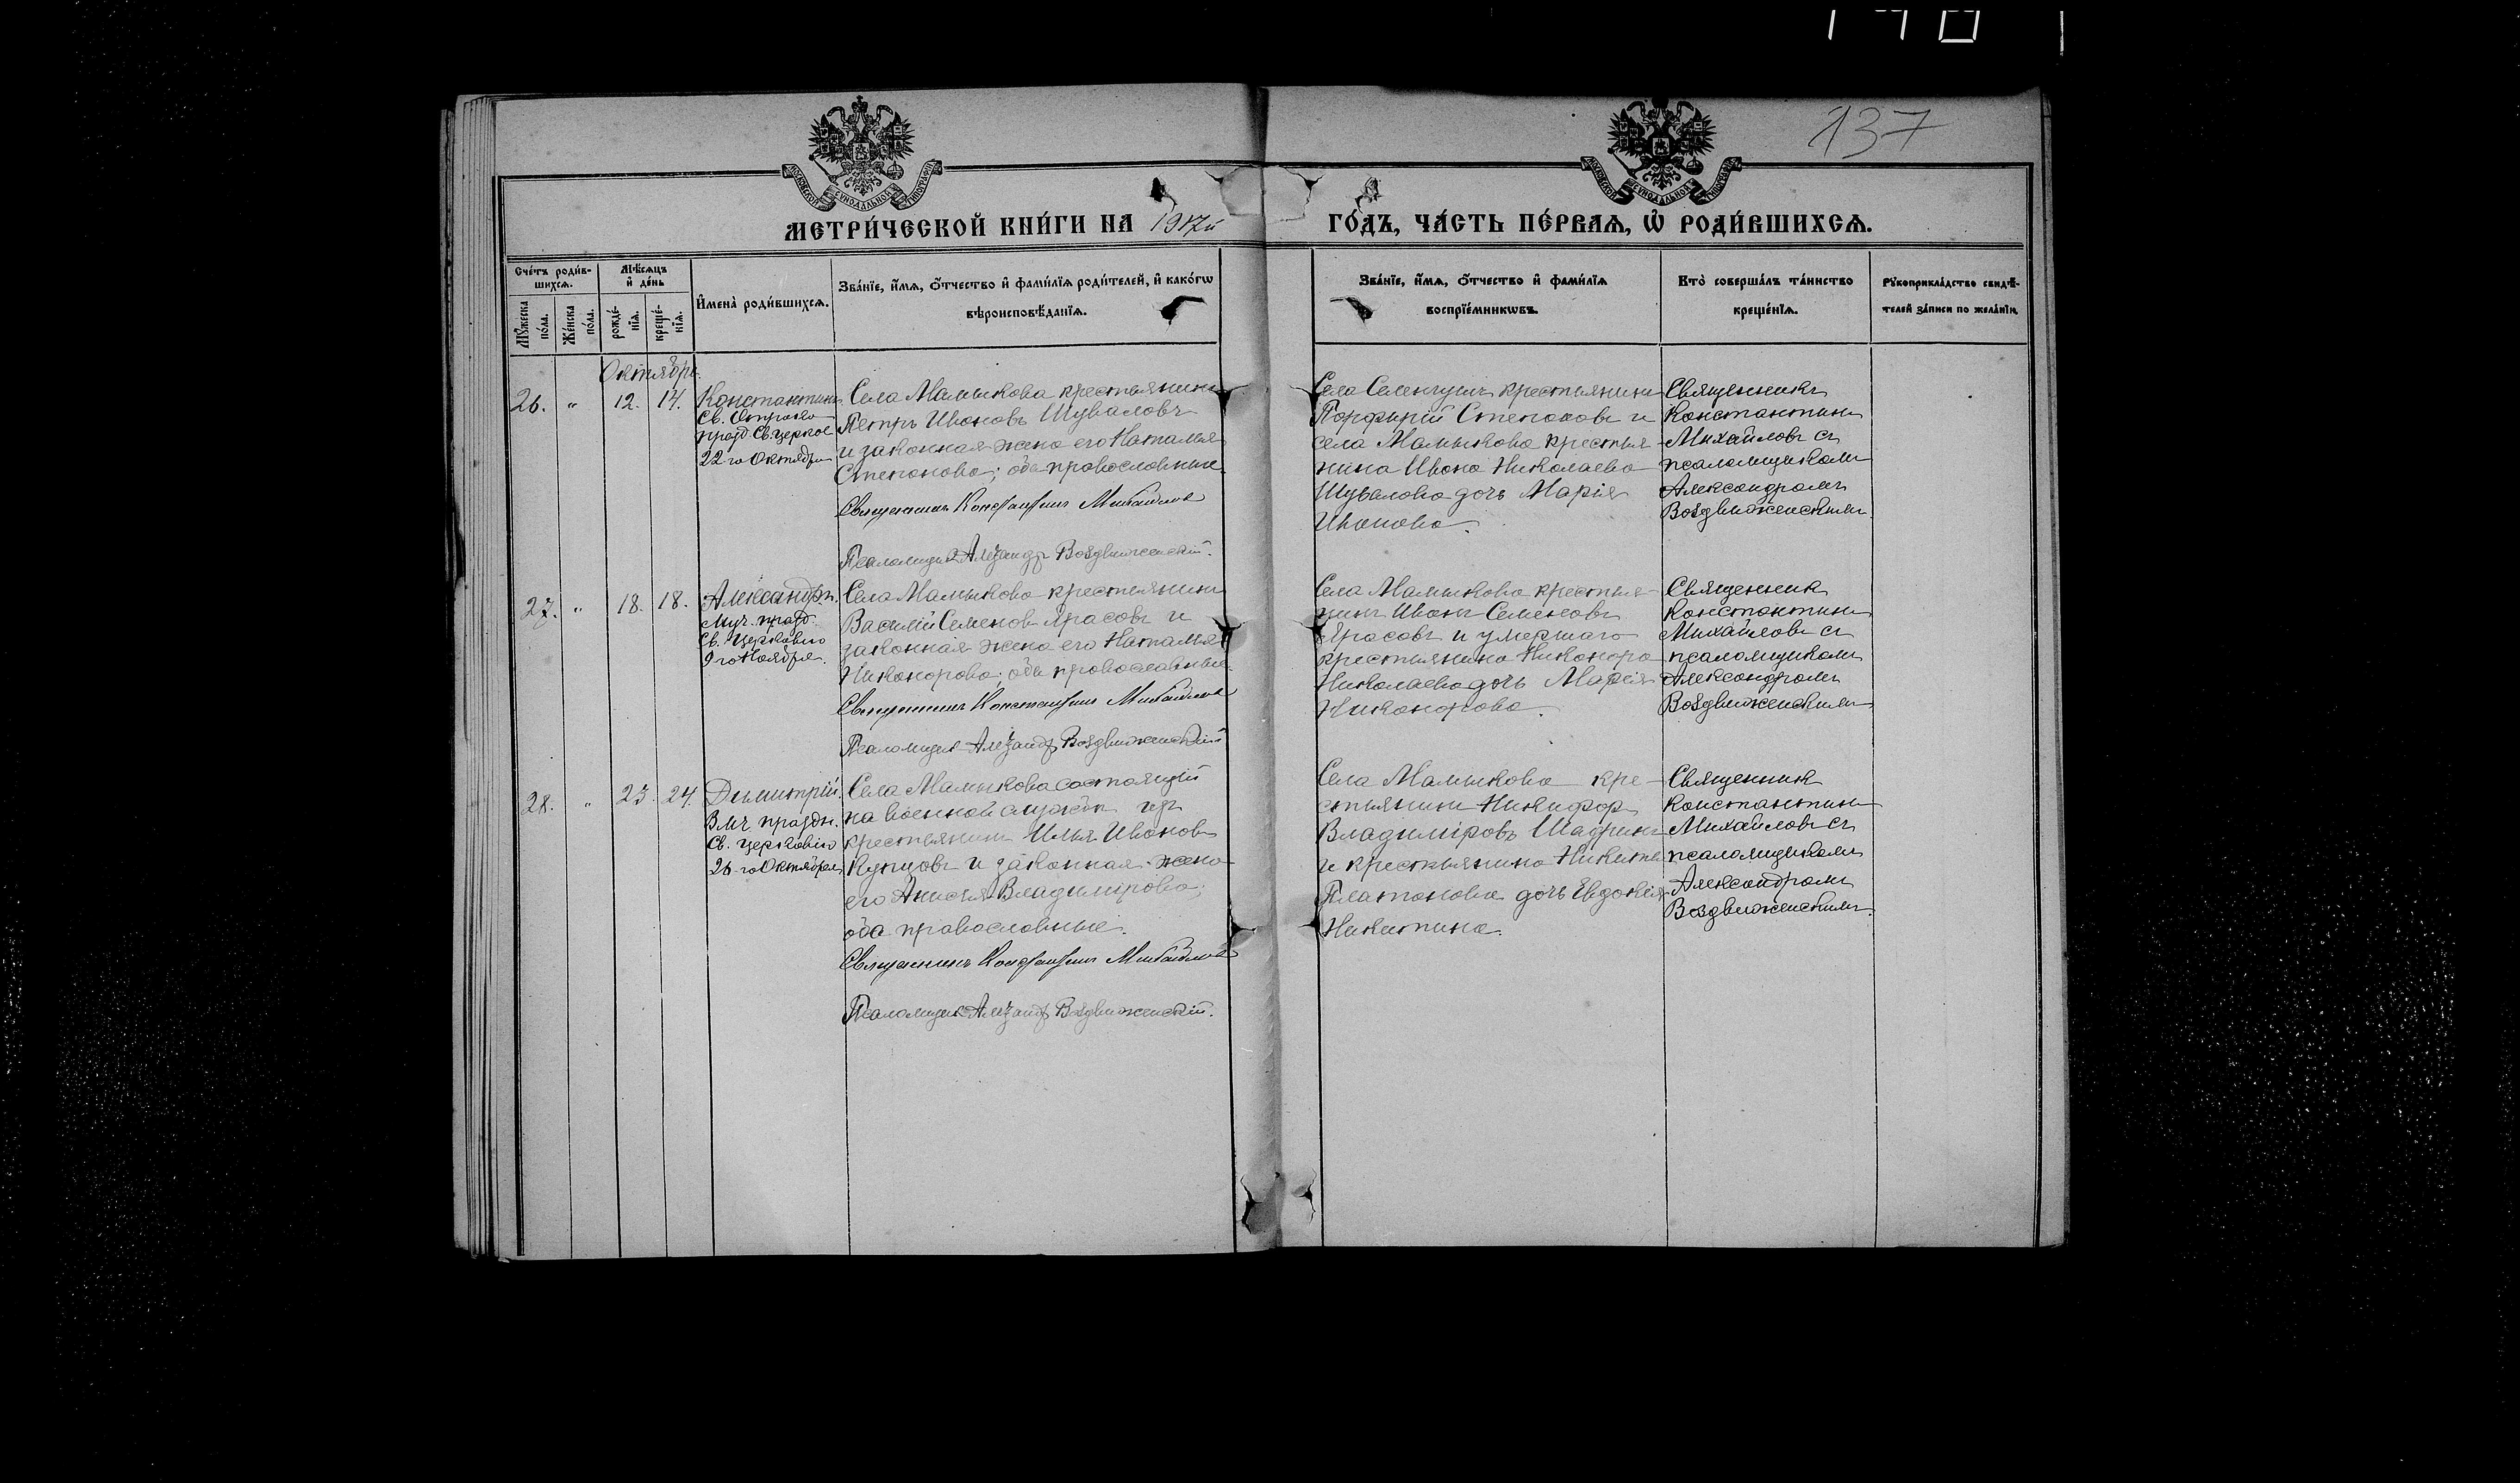 137
МОСКОВСКОЙ СѴНОДАЛЬНОЙ ТИПОГРАФІИ
МОСКОВСКОЙ СѴНОДАЛЬНОЙ ТИПОГРАФІИ
МЕТРИ́ЧЕСКОЙ КНИ́ГИ НА 1917й ГО́ДЪ, ЧА́СТЬ ПЕ́РВАѦ, Ѽ РОДИ́ВШИХСѦ.
Сче́тъ роди́в-
шихсѧ.
Мꙋ́жеска по́ла.
Же́нска по́ла.
Мѣ́сѧцъ и҆ де́нь
рожде́-
нїѧ.
креще́-
нїѧ.
И҆мена̀ роди́вшихсѧ.
Зва́нїе, и҆́мѧ, ѻ҆́тчество и҆ фами́лїѧ роди́телей, и҆ како́гѡ
вѣроисповѣ́данїѧ.
Зва́нїе, и҆́мѧ, ѻ҆́тчество и҆ фами́лїѧ
воспрїе́мникѡвъ.
Кто̀ соверша́лъ та́инство
креще́нїѧ.
Рꙋкоприкла́дство свидѣ́-
телей за́писи по жела́нїю.
Октябрь.
26. " 12. 14.
Константинъ
Св. Отрока
празд. Св. церков
22 го Октября
Села Мамыкова крестьянинъ
Петръ Ивановъ Шуваловъ
и законная жена его Наталья
Степанова; оба православные.
Священникъ Константинъ Михайловъ
Псаломщикъ Александръ Воздвиженскій.
Села Селенгуши крестьянинъ
Порфирій Степановъ и
села Мамыкова крестья-
нина Ивана Николаева
Шувалова дочь Марія
Иванова.
Священникъ
Константинъ
Михайловъ съ
псаломщикомъ
Александромъ
Воздвиженскимъ.
27. " 18. 18.
Александръ.
Муч. празд.
Св. Церковію
9 го Ноября.
Села Мамыкова крестьянинъ
Василій Семеновъ Ярасовъ и
законная жена его Наталья
Никонорова; оба православные
Священникъ Константинъ Михайловъ
Псаломщикъ Александръ Воздвиженскій
Села Мамыкова крестья-
нинъ Иванъ Семеновъ
Ярасовъ и умершаго
крестьянина Никонора
Николаева дочь Марія
Никонорова.
Священник
Константинъ
Михайловъ съ
псаломщикомъ
Александромъ
Воздвиженскимъ
28. " 23. 24.
Димитрій.
Вмч. праздн.
Св. церковію
26 го Октября
Села Мамыкова состоящій
на военной службѣ изъ
крестьянинъ Илья Ивановъ
Купцовъ и законная жена
его Анисья Владимірова;
оба православные.
Священникъ Константинъ Михайловъ
Псаломщикъ Александръ Воздвиженскій.
Села Мамыкова кре-
стьянинъ Никифор
Владиміровъ Шадринъ
и крестьянина Никиты
Платонова дочь Евдокія
Никитина.
Священник
Константинъ
Михайловъ съ
псаломщикомъ
Александромъ
Воздвиженскимъ.